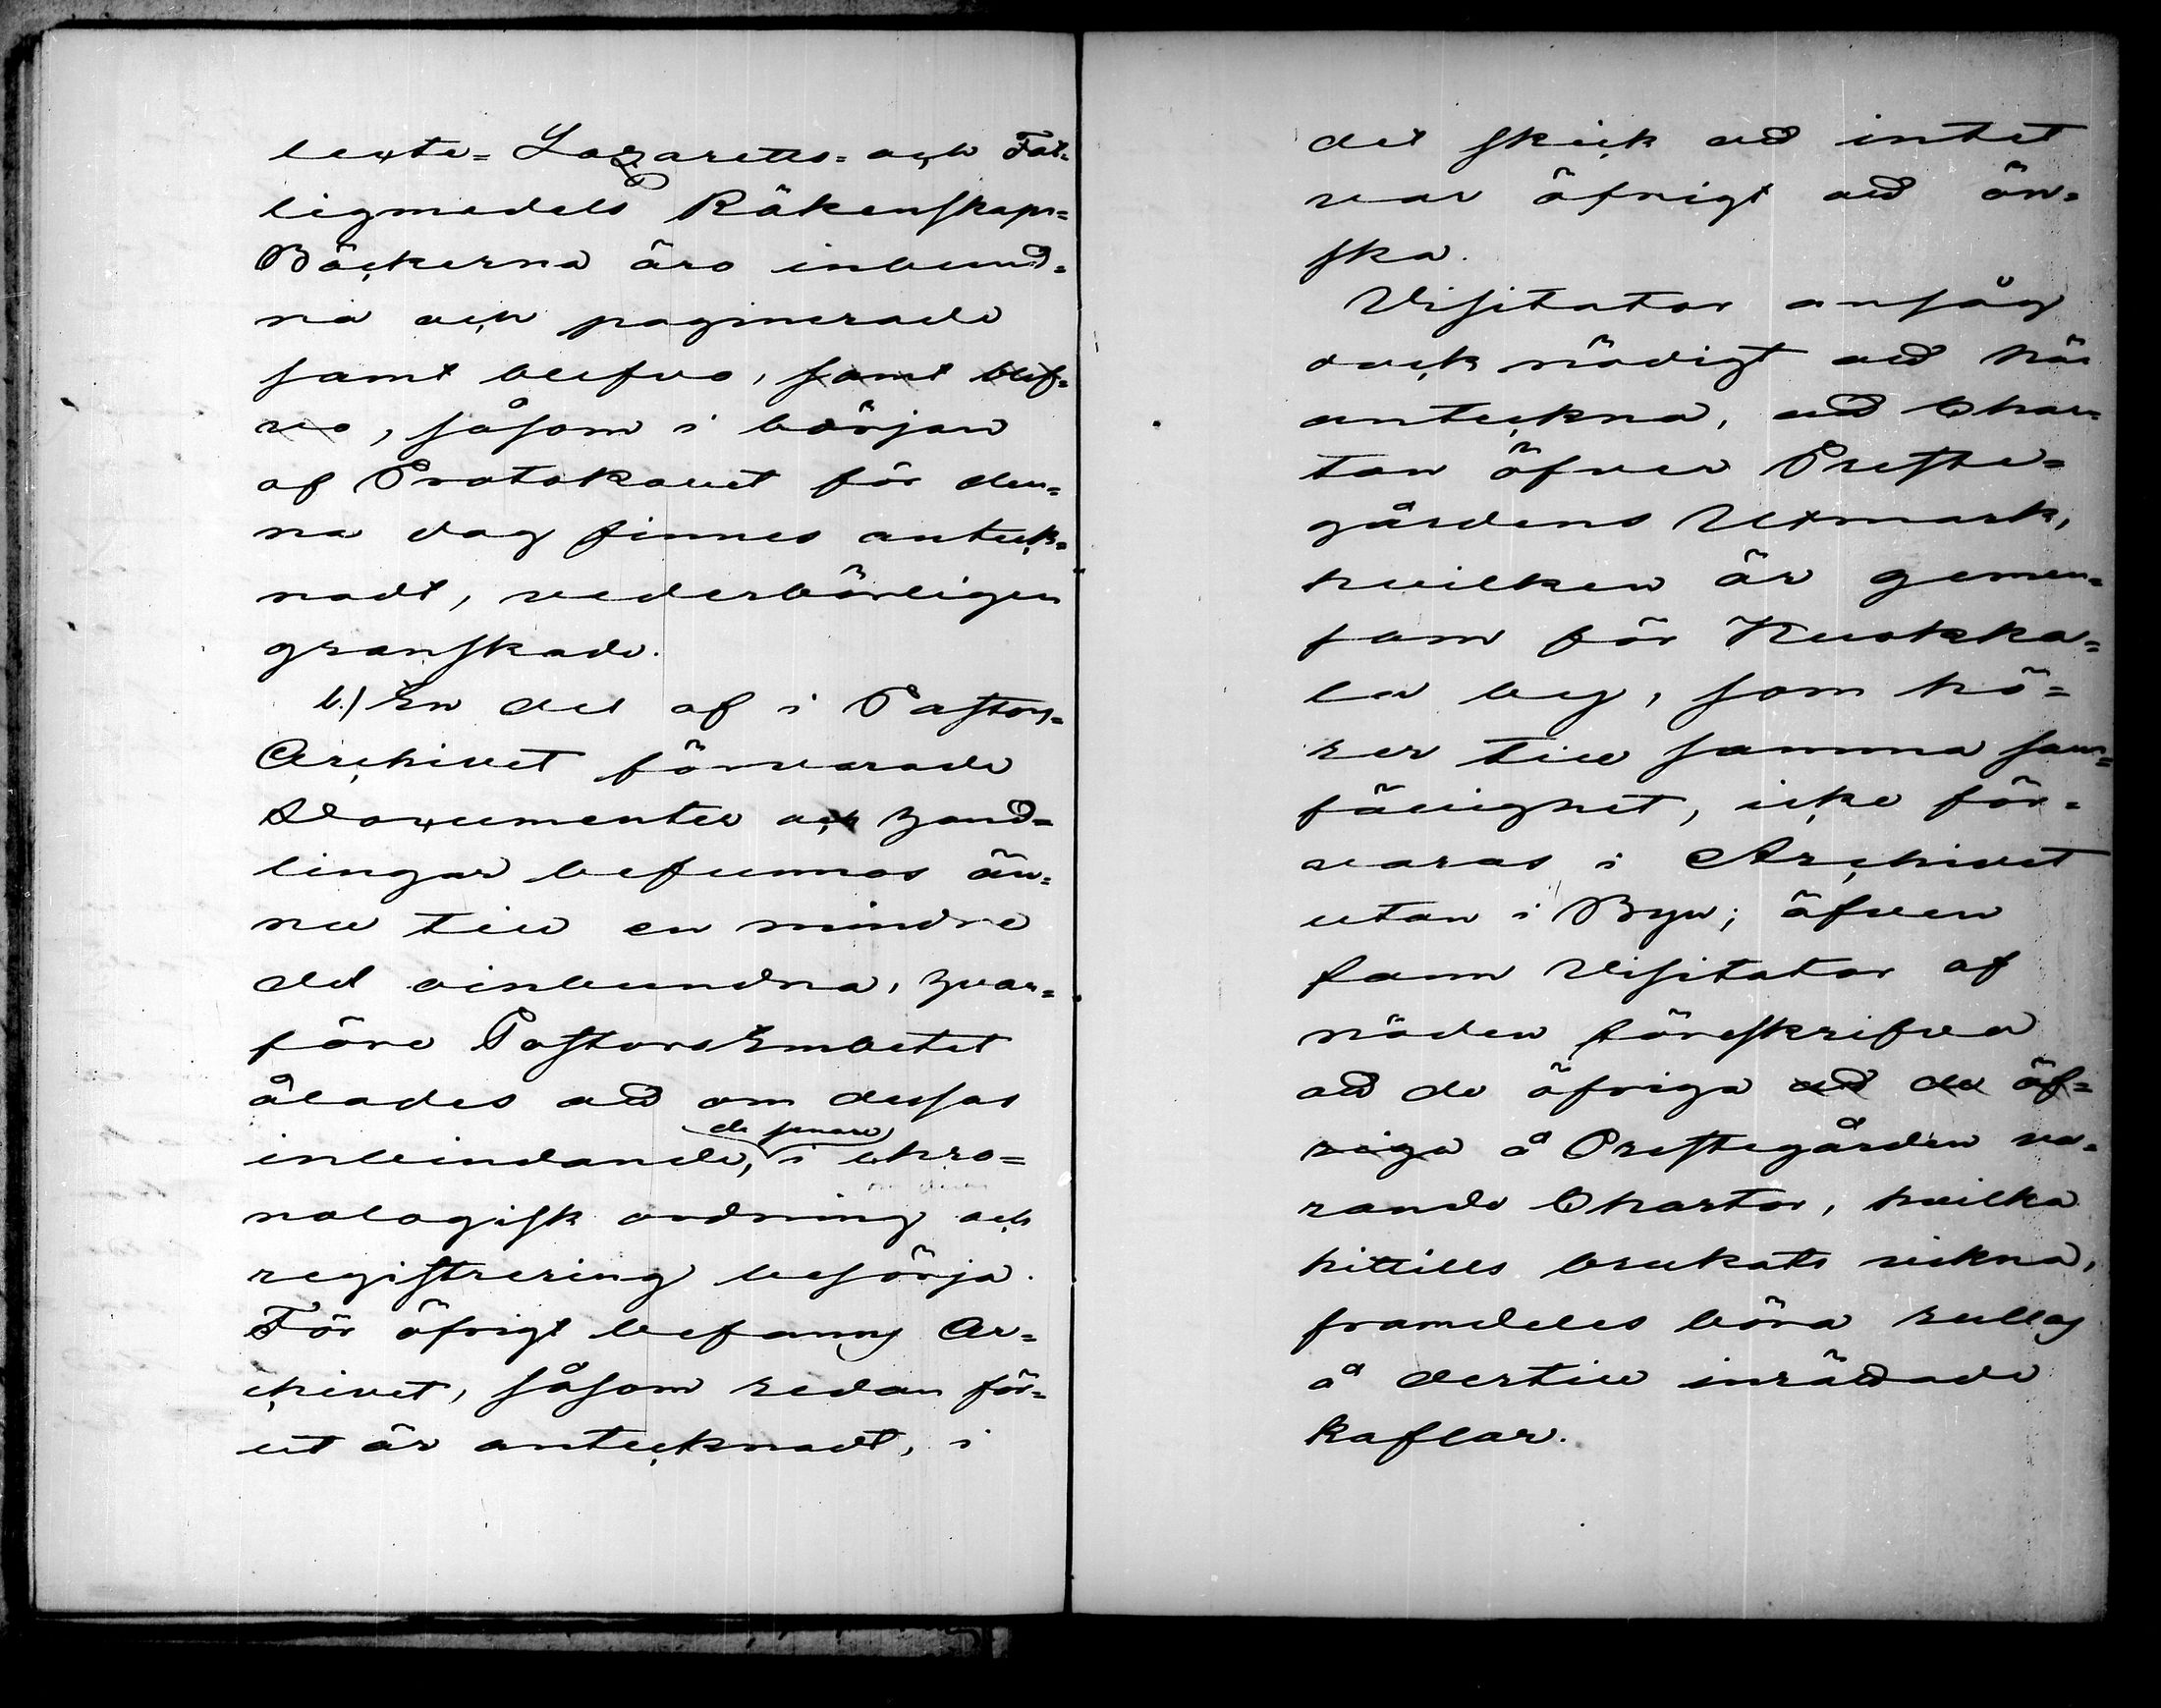 lecte= Lazaretts= och Fat=
tigmedels Räkenskaps=
Böckerna äro inbund=
na och paginerade
samt blefvo, samt blef=
vo, såsom i början
af Protokollet för den=
na dag finnes anteck=
nadt, vederbörligen
granskade.
b.) En del af i Pastors=
Archivet förvarade
Documenter och Hand=
lingar befunnos än=
nu till en mindre
del oinbundna, hvar=
före PastorsEmbetet
ålades att om dessas
de senare
inbindande, i chro=
nologisk ordning och
registrering besörja.
För öfrigt befanns Ar=
chivet, såsom redan för=
ut är antecknadt, i
det skick att intet
var öfrigt att ön=
ska.
Visitator ansåg
dock nödigt att här
anteckna, att Char=
tan öfver Preste=
gårdens Utmark,
hvilken är gemen=
sam för Kuokka=
la by, som hö=
rer till samma sam=
fällighet, icke för=
varas i Archivet
utan i Byn; äfven
fann Visitator af
nöden föreskrifva
att de öfriga att de öf=
riga å Prestegården va=
rande Chartor, hvilka
hittills brukats vikna,
framdeles böra rullas
å dertill inrättade
kaflar.